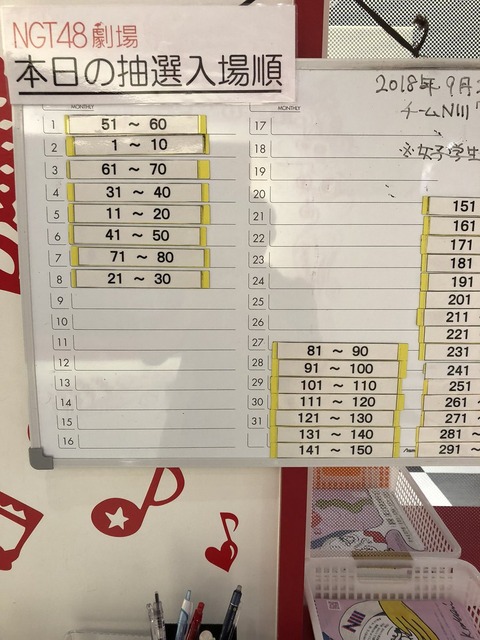 NGT48劇場
本日の抽選入場順
2018年 9月
チームNIII
※女子学生
MONTHLY
1 51 ~ 60
2 1 ~ 10
3 61 ~ 70
4 31 ~ 40
5 11 ~ 20
6 41 ~ 50
7 71 ~ 80
8 21 ~ 30
9
10
11
12
13
14
15
16
MONTHLY
17
18
19
20
21
22
23
24
25
26
27
28
29
30
31
81 ~ 90
91 ~ 100
101 ~ 110
111 ~ 120
121 ~ 130
131 ~ 140
141 ~ 150
151
161
171
181
191
201
211 ~
221
231
241
251
261 ~
271 ~
281 ~
291 ~
NIII